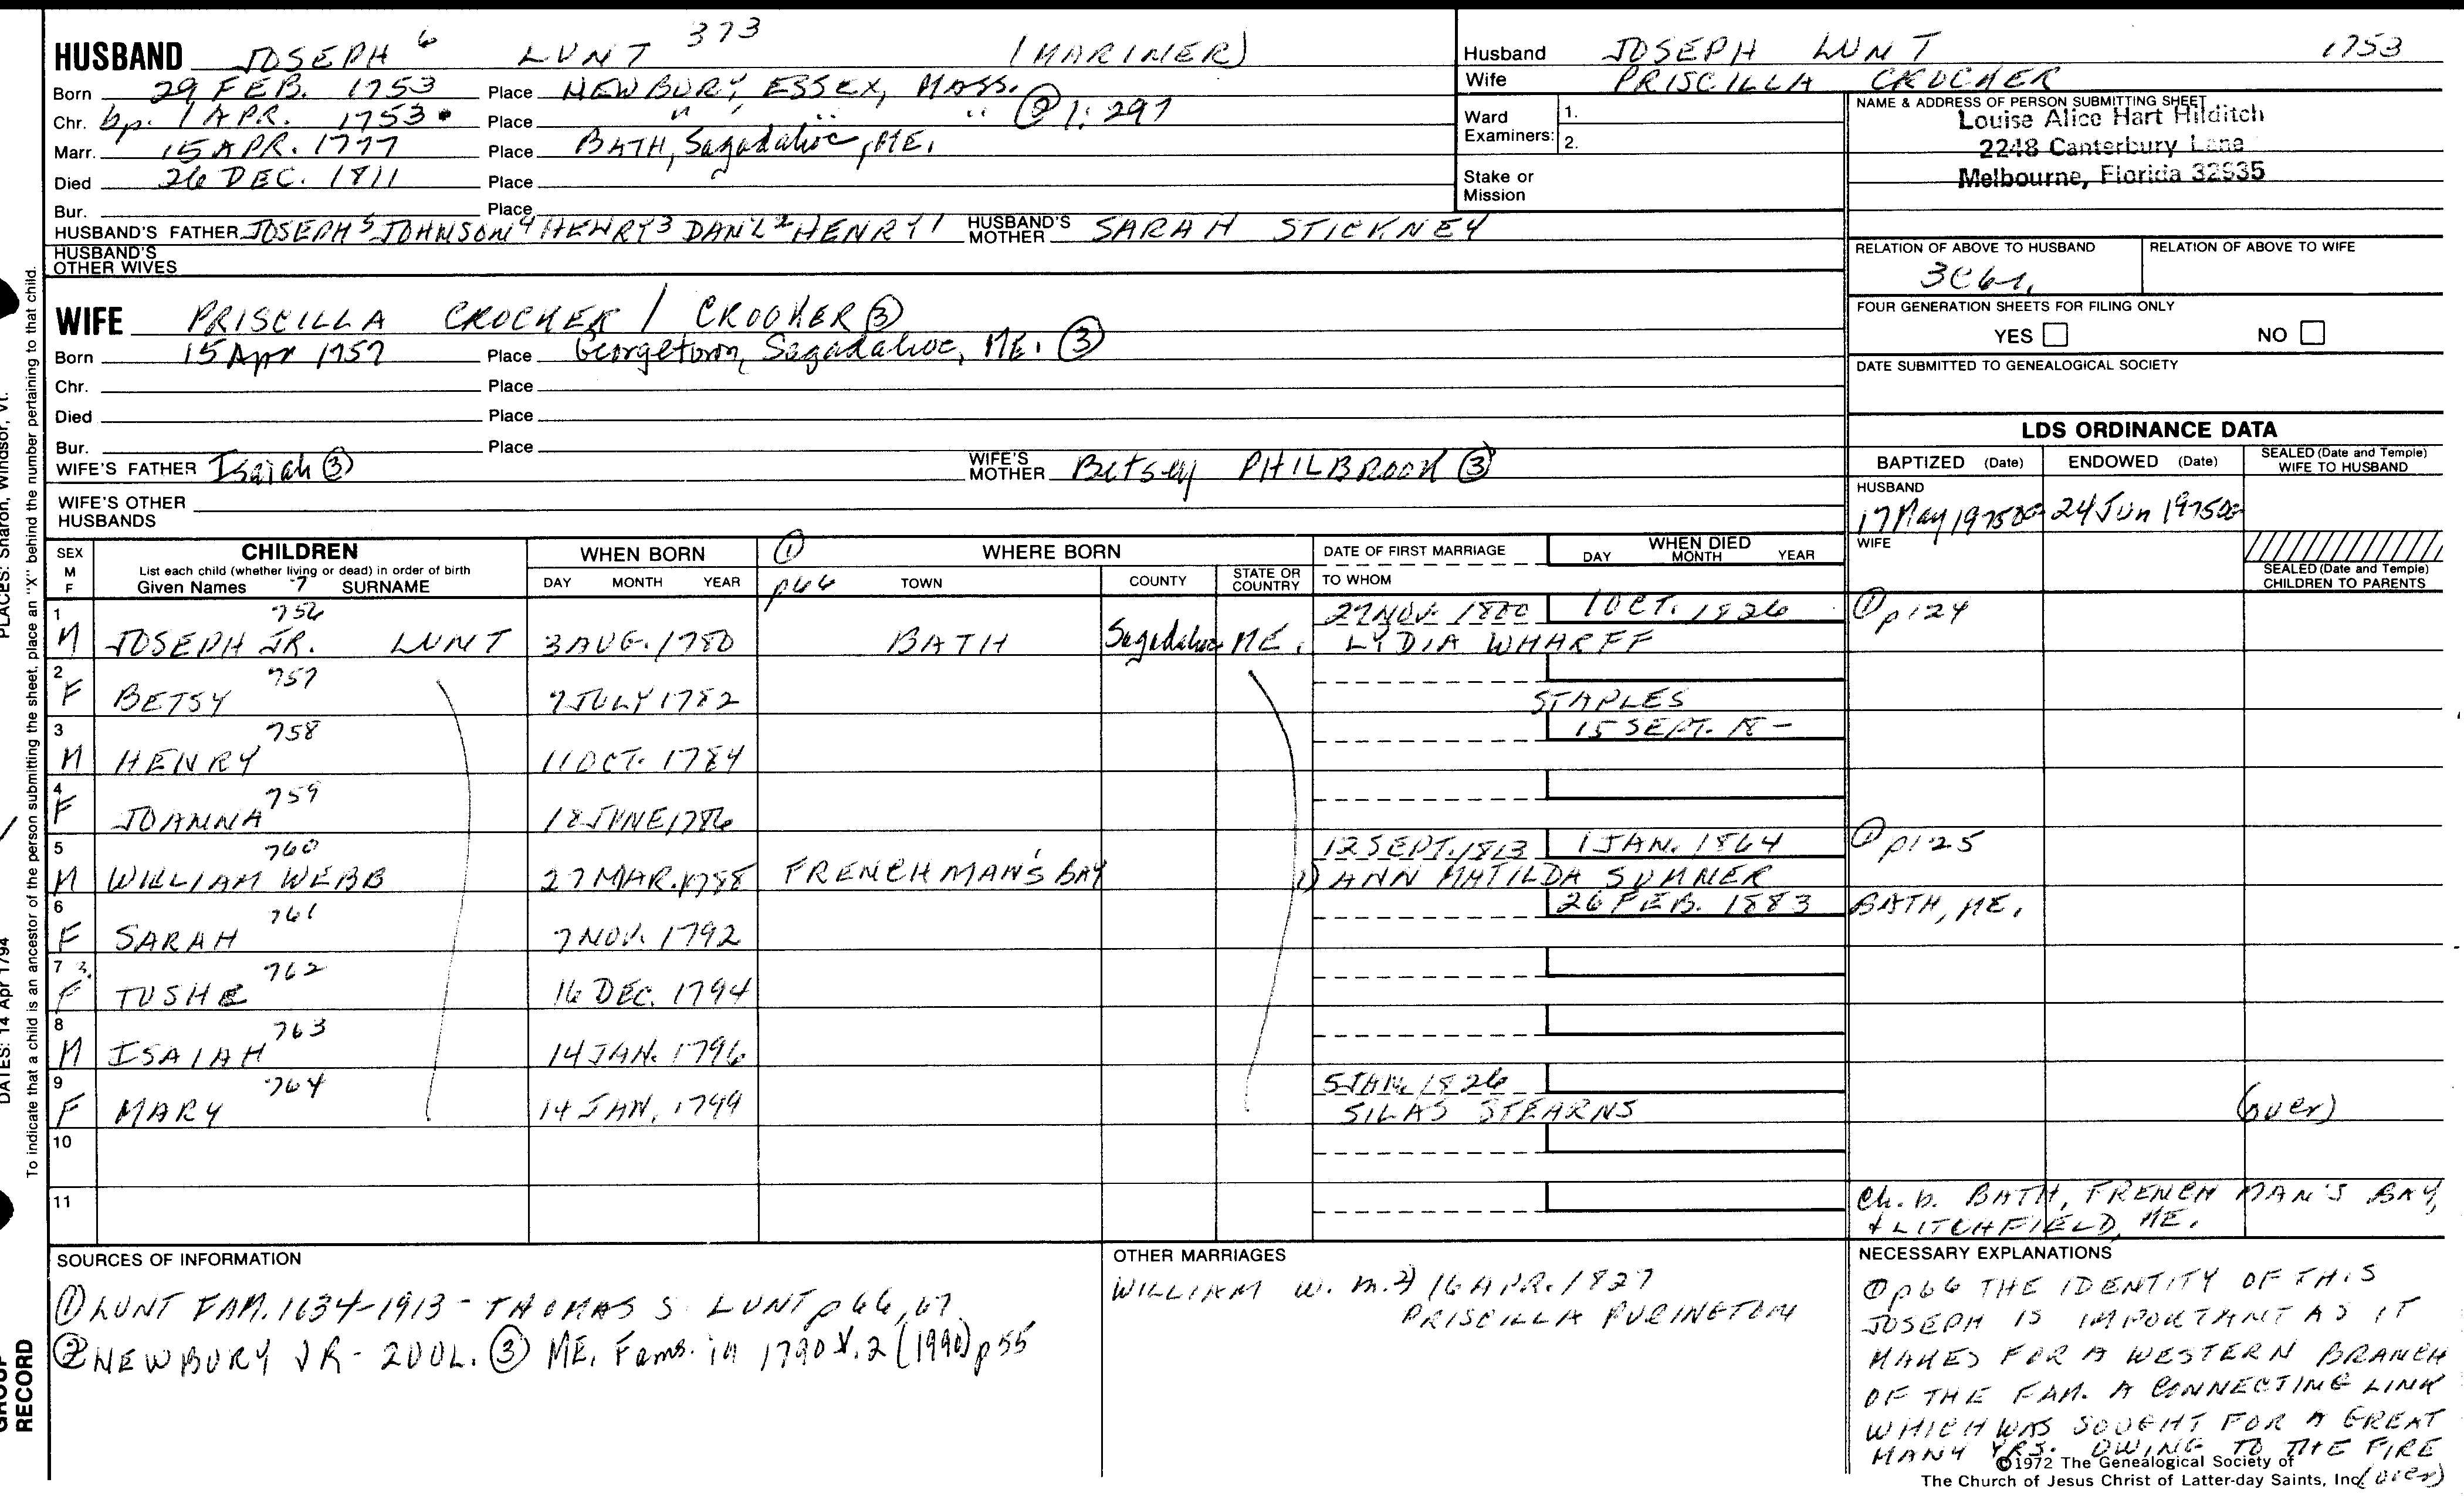 HUSBAND JOSEPH 6 LUNT 373 (MARINER)
Born 29 FEB. 1753 Place NEWBURY, ESSEX, MASS.
Chr. bp. 1 APR. 1753 Place " " " ② 1: 297
Marr. 15 APR. 1777 Place BATH, Sagadahoc, ME.
Died 26 DEC. 1811 Place
Bur. Place
HUSBAND'S FATHER JOSEPH 5 JOHNSON 4 HENRY 3 DAN'L 2 HENRY 1 HUSBAND'S MOTHER SARAH STICKNEY
HUSBAND'S OTHER WIVES
WIFE PRISCILLA CROCKER / CROOKER ③
Born 15 Apr 1757 Place Georgetown, Sagadahoc, ME. ③
Chr. Place
Died Place
Bur. Place
WIFE'S FATHER Isaiah ③ WIFE'S MOTHER Betsey PHILBROOK ③
WIFE'S OTHER HUSBANDS
Husband JOSEPH LUNT 1753
Wife PRISCILLA CROCKER
Ward Examiners: 1. 2.
Stake or Mission
NAME & ADDRESS OF PERSON SUBMITTING SHEET
Louise Alice Hart Hilditch
2248 Canterbury Lane
Melbourne, Florida 32935
RELATION OF ABOVE TO HUSBAND RELATION OF ABOVE TO WIFE
3C6r.
FOUR GENERATION SHEETS FOR FILING ONLY
YES NO
DATE SUBMITTED TO GENEALOGICAL SOCIETY
LDS ORDINANCE DATA
BAPTIZED (Date) ENDOWED (Date) SEALED (Date and Temple) WIFE TO HUSBAND
HUSBAND
17 May 1975 24 Jun 1975
WIFE
SEALED (Date and Temple) CHILDREN TO PARENTS
SEX M F CHILDREN WHEN BORN ① p66 WHERE BORN DATE OF FIRST MARRIAGE WHEN DIED
List each child (whether living or dead) in order of birth
Given Names 7 SURNAME DAY MONTH YEAR TOWN COUNTY STATE OR COUNTRY TO WHOM DAY MONTH YEAR
1 756 27 NOV. 1800 1 OCT. 1826 ① p124
M JOSEPH JR. LUNT 3 AUG. 1780 BATH Sagadahoc ME. LYDIA WHARFF
2 757
F BETSY 7 JULY 1782 STAPLES
3 758 15 SEPT. 18-
M HENRY 11 OCT. 1784
4 759
F JOANNA 18 JUNE, 1786
5 760 12 SEPT. 1813 1 JAN. 1864 ① p125
M WILLIAM WEBB 27 MAR. 1788 FRENCHMAN'S BAY 1) ANN MATILDA SUMNER
6 761 26 FEB. 1883 BATH, ME.
F SARAH 7 NOV. 1792
7 762
F TUSHE 16 DEC. 1794
8 763
M ISAIAH 14 JAN. 1796
9 764 5 JAN. 1826
F MARY 14 JAN. 1799 SILAS STEARNS (over)
10
11 Ch. b. BATH, FRENCH MAN'S BAY,
& LITCHFIELD, ME.
SOURCES OF INFORMATION
① LUNT FAM. 1634-1913 - THOMAS S. LUNT p66, 67
② NEWBURY VR - 2 VOL. ③ ME. Fams. in 1790 V.2 (1990) p55
OTHER MARRIAGES
WILLIAM W. m. 2) 16 APR. 1827
PRISCILLA PURINGTON
NECESSARY EXPLANATIONS
① p66 THE IDENTITY OF THIS
JOSEPH IS IMPORTANT AS IT
MAKES FOR A WESTERN BRANCH
OF THE FAM. A CONNECTING LINK
WHICH WAS SOUGHT FOR A GREAT
MANY YRS. OWING TO THE FIRE
(over)
©1972 The Genealogical Society of
The Church of Jesus Christ of Latter-day Saints, Inc.
PLACES: Sharon, Windsor, Vt.
DATES: 14 Apr 1794
To indicate that a child is an ancestor of the person submitting the sheet, place an "X" behind the number pertaining to that child.
GROUP
RECORD